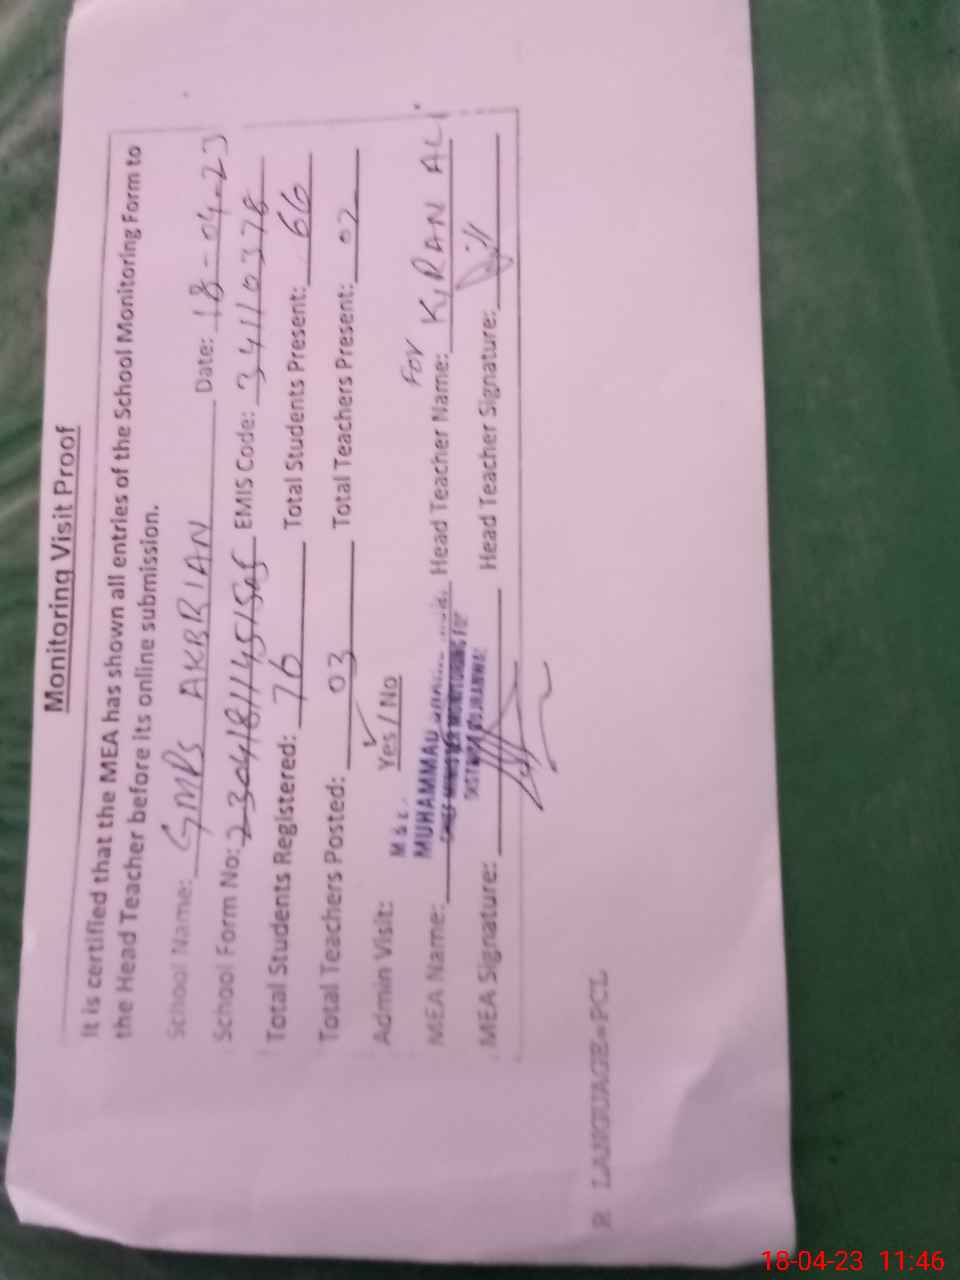 Monitoring Visit Proof
It is certified that the MEA has shown all entries of the School Monitoring Form to
the Head Teacher before its online submission.
School Name: GMPS AKBRIAN Date: 18-04-23
School Form No: EMIS Code: 34110378
Total Students Registered: 76 Total Students Present: 66
Total Teachers Posted: 03 Total Teachers Present: 02
Admin Visit: Yes / No
M & E
For
MEA Name: MUHAMMAD Head Teacher Name: KIRAN ALI
MEA Signature: Head Teacher Signature:
R LANGUAGE=PCL
18-04-23 11:46